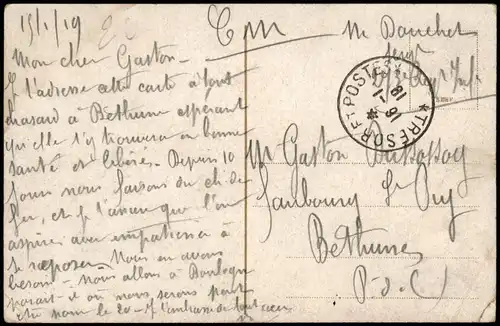 15/1/19
Mon cher Gaston –
Je t'adresse cette carte à tout
hasard à Béthune espérant
qu'elle t'y trouvera en bonne
santé et libéré. Depuis 10
jours nous faisons du ch. de
fer, et je t'assure que l'on
aspire avec impatience à
se reposer. Nous en avons
besoin – Nous allons à Boulogne
parait-il où nous serons peut
être même le 20 – Je t'embrasse de tout cœur
C M
M. Douchet
TRESOR ET POSTES
16
1
M. Gaston
Faubourg St Pry
Béthune
P-d-C)